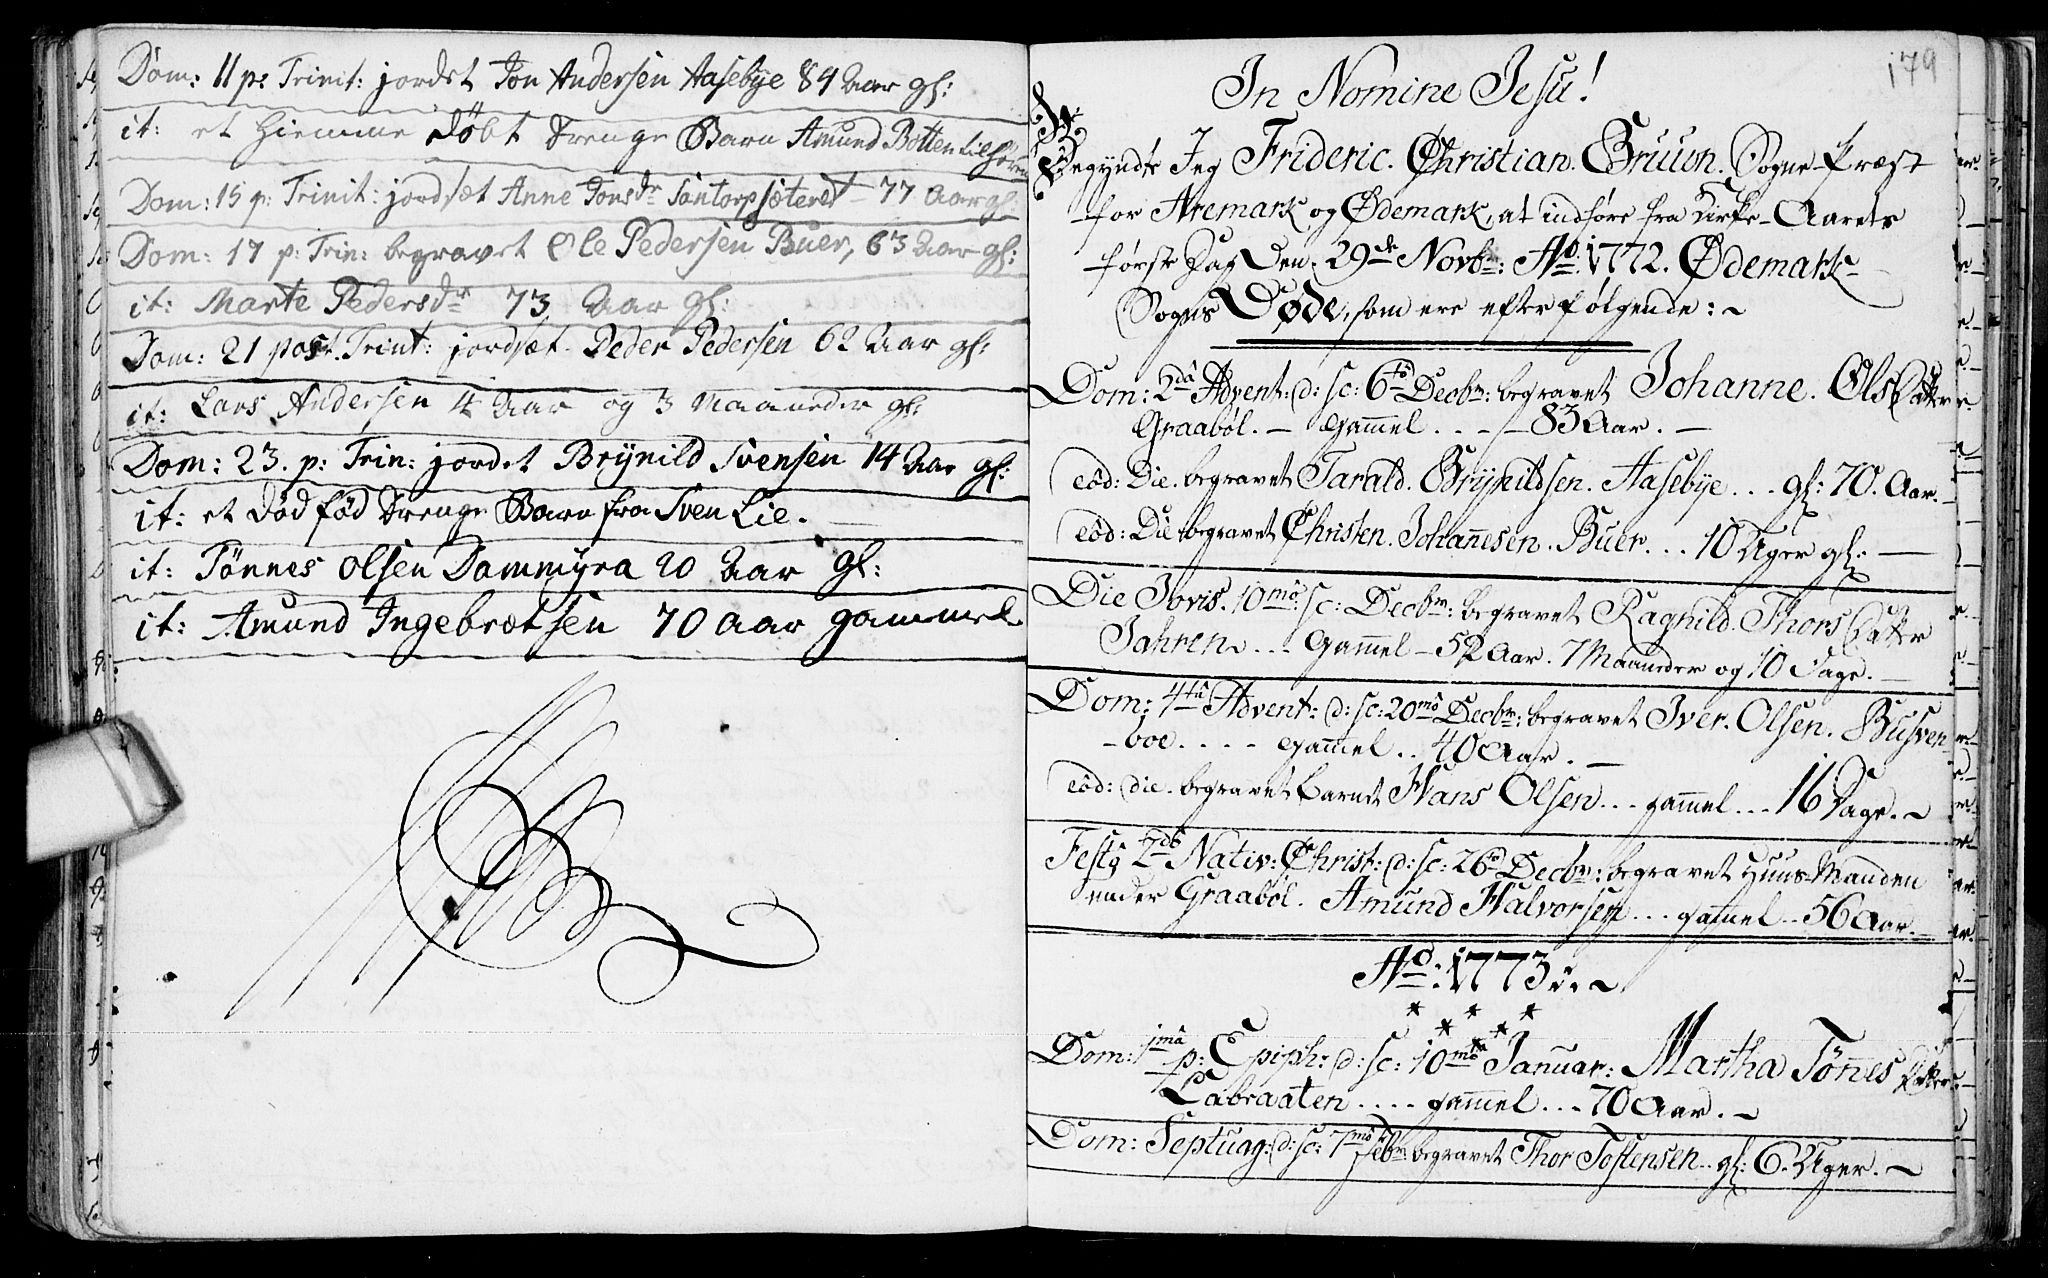 Dom: 11 p: Trinit: jordet Jon Andersen Aasebye 84 Aar gl:
it: et Hiemme døbt Drenge Barn Amund Botten Lie
Dom: 15 p: Trinit: jordsæt Anne Jonsdr Santorpsæteret 77 Aar gl:
Dom: 17 p: Trin: begravet Ole Pedersen Buer, 63 Aar gl:
it: Marte Pedersdr 73 Aar gl:
Dom: 21 post. Trint: jordsæt Peder Pedersen 62 Aar gl:
it: Lars Andersen 4 Aar og 3 Maaneder gl:
Dom: 23. p: Trin: jordet Brÿnild Svensen 14 Aar gl:
it: et død fød Drenge Barn fra Sven Lie.
it: Tønnes Olsen Dammyra 20 Aar gl:
it: Amund Ingebrætsen 70 Aar gammel
179
In Nomine Jesu!
Begyndte Jeg Frideric. Christian. Bruun. Sogne-Præst
for Aremark og Ødemark, at indføre fra Kirke-Aarets
første Dag Den. 29de Novbr: Ao: 1772. Ødemark-
Sogns Døde, som ere efterfølgende: ~
Dom: 2da Advent: d: sc: 6to Decbr: begravet Johanne. Ols Datter
Graabøl. - gam̄el. . . . - 83 Aar. -
eôd: Die. begravet Tarald. Brÿnildsen. Aasebÿe . . . gl: 70. Aar.
eôd: Die begravet Christen. Johan̄esen. Buer. . . 10 Uger gl: -
Die Jovis. 10mo: sc: Decbr: begravet Ragnild. Thors Datter
Jahren. . . . Gam̄el - 52 Aar. 7 Maaneder og 10 Dage. -
Dom: 4ta Advent: d: sc: 20mo Decbr: begravet Iver. Olsen. Busven
-boe. . . . . gam̄el . . 40 Aar. -
eôd: die. begravet Barnet Hans Olsen . . . gam̄el . . . 16 Dage. ~
Festo 2do Nativ: Christ: d: sc: 26to Decbr: begravet Huus-Manden
under Graabøl. Amund Halvorsen . . . gam̄el . . 56 Aar.
Ao: 1773 :: ~
* * *
* *
Dom: 1ma p: Epiph: d: sc: 10mo Januar: Martha Tøn̄es Datter
Labraaten . . . . gam̄el . . . 70 Aar. ~
Dom: Septuag: d: sc: 7mo Febr: begravet Thor Tostensen . . gl: 6. Uger. ~